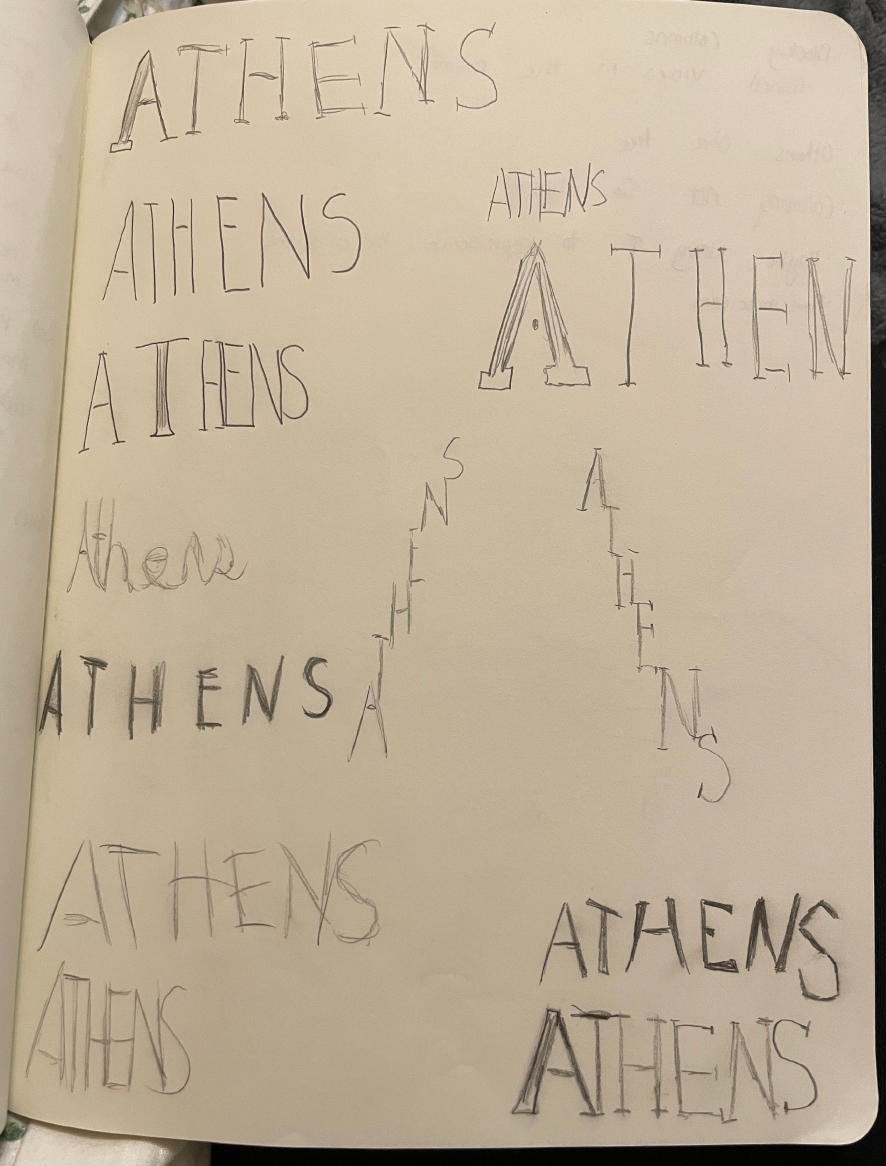 ATHENS
ATHENS
ATHENS
ATHEN
ATHENS
Athens
ATHENS
ATHENS
ATHENS
ATHENS
ATHENS
ATHENS
ATHENS